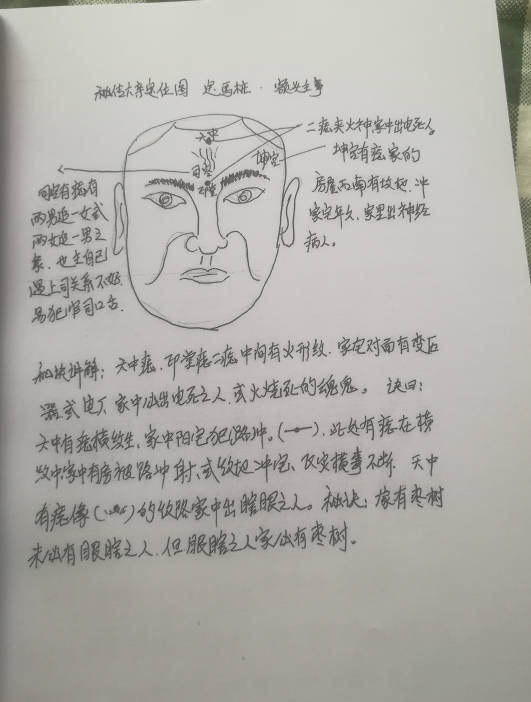 秘传大宗定位图 定马桩·额头主事
天中
二痣夹火神家中出电死人。
坤宫
坤宫有痣家的
司空
印堂
房屋西南有坟地,冲
家宅年久,家里出神经
病人。
司空有痣有
两男追一女或
两女追一男之
象,也主自己
遇上司关系不好.
易犯官司口舌
秘诀讲解:天中痣.印堂痣二痣中间有火形纹.家宅对面有变压
器或电厂,家中必出电死之人,或火烧死的魂鬼。诀曰:
天中有痣横纹生,家中阳宅犯路冲。(),此处有痣在横
纹中,家中有房被路冲射,或纹把冲宅,凶灾横事不断.天中
有痣像()的纹路家中出瞎眼之人。秘诀:家有枣树
未必有眼瞎之人.但眼瞎之人家必有枣树。